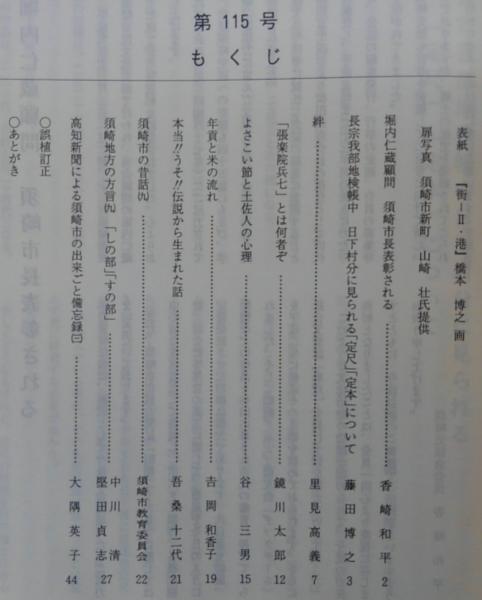 第115号
もくじ
表紙 『街-Ⅱ・港』橋本 博之 画
扉写真 須崎市新町 山崎 壮氏提供
堀内仁蔵顧問 須崎市長表彰される……香崎和平 2
長宗我部地検帳中 日下村分に見られる「定尺」「定本」について 藤田博之 3
絆……里見高義 7
「張楽院兵七」とは何者ぞ……鏡川太郎 12
よさこい節と土佐人の心理……谷三男 15
年貢と米の流れ……吉岡和香子 19
本当!!うそ!!伝説から生まれた話……吾桑十二代 21
須崎市の昔話㈨……須崎市教育委員会 22
須崎地方の方言㈨ 「しの部」「すの部」……中川 清 堅田貞志 27
高知新聞による須崎市の出来ごと備忘録㈢……大隅英子 44
○誤植訂正
○あとがき